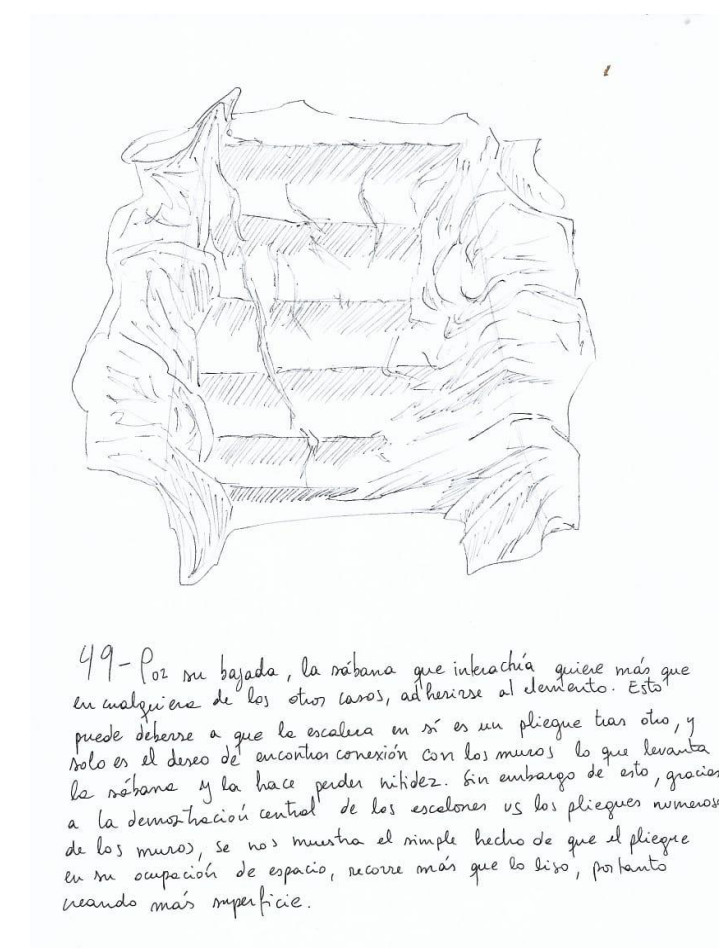 49- Por su bajada, la sábana que interactúa quiere más que
en cualquiera de los otros casos, adherirse al elemento. Esto
puede deberse a que la escalera en sí es un pliegue tras otro, y
solo es el deseo de encontrar conexión con los muros lo que levanta
la sábana y la hace perder nitidez. Sin embargo de esto, gracias
a la demostración central de los escalones vs los pliegues numeroso
de los muros, se nos muestra el simple hecho de que el pliegue
en su ocupación de espacio, recorre más que lo liso, por tanto
creando más superficie.